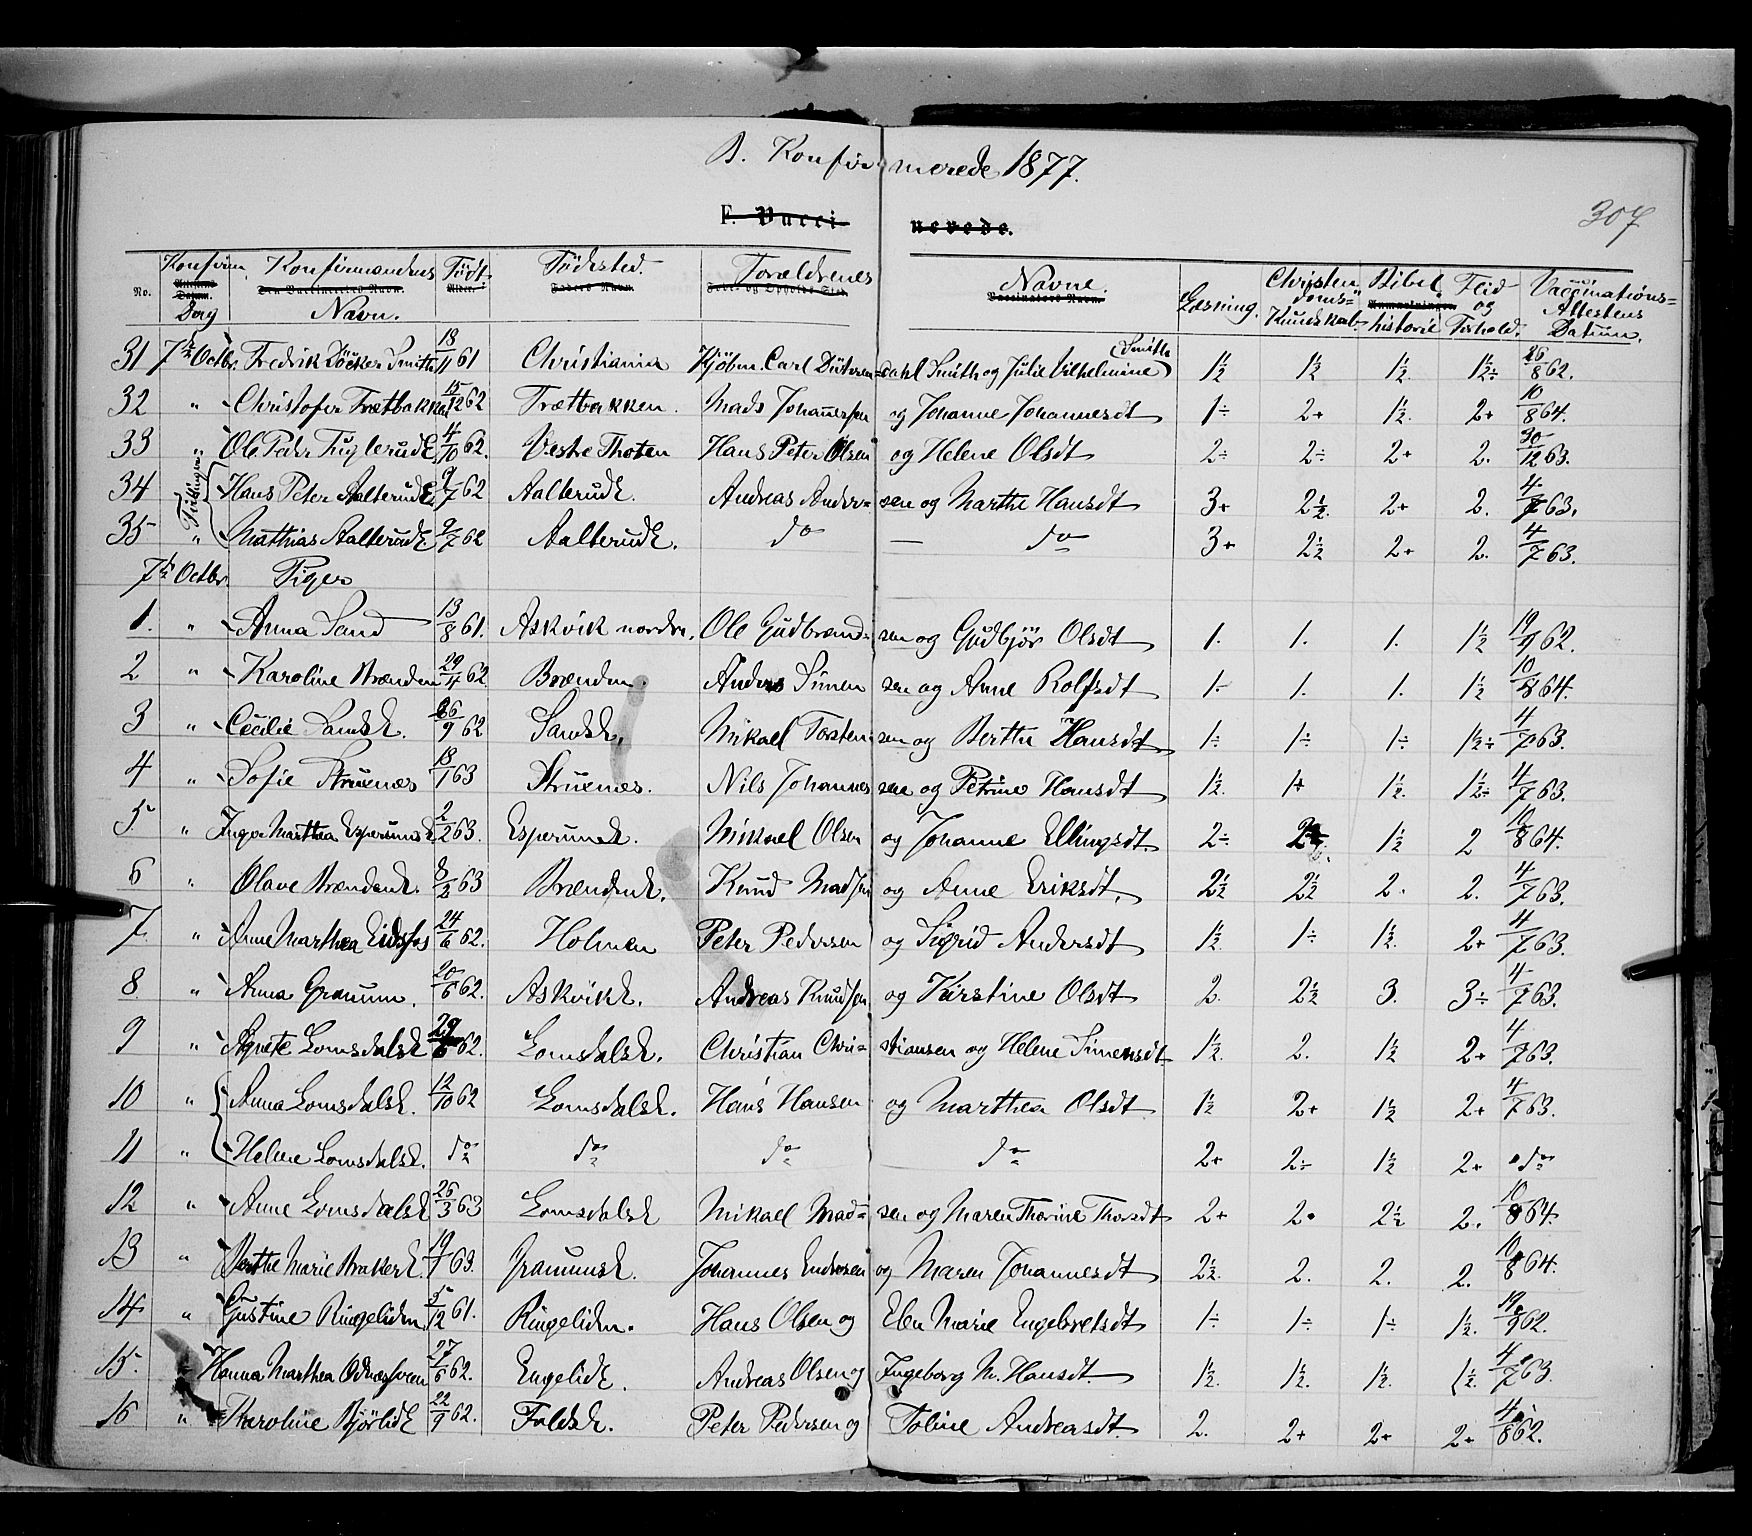 B. Konfirmerede 1877.
F. Vaccinerede.
307
No. Konfirm. Dag Konfirmandens Navn. Født Fødested. Forældrenes Navne. Læsning. Christendoms=Kundskab. Bibelhistorie Flid og Forhold. Vaccinations=Attestens Datum.
31 7de Octbr. Fredrik Döcker Smith 18/11 61 Christiania Kjøbm. Carl Smith og Julie Vilhelmine Smith 1½ 1½ 1½. 1½÷ 26/8 62.
32 " Christofer Trætbakken 15/12 62 Trætbakken. Mads Johannessen og Johanne Johannesdt 1÷ 2+ 1½. 2+ 10/8 64.
33 " Ole Peder Fuglerudk. 4/10 62. Vestre Thoten Hans Peter Olsen og Helene Olsdt 2÷ 2÷ 2+ 2. 30/12 63.
34 Tvillinger Hans Peter Aalterudk. 9/7 62 Aalterudk. Andreas Andersen og Marthe Hansdt 3+ 2½. 2+ 2. 4/7 63.
35 " Mathias Aalterudk. 9/7 62 Aalterudk. do — do 3+ 2½ 2+ 2. 4/7 63.
7de Octbr. Piger
1. " Anna Sand 13/8 61. Askvik nordre. Ole Gudbrandsen og Gudbjør Olsdt 1. 1. 1. 1½ 19/9 62.
2 " Karoline Brænden 29/4 62 Brænden. Anders Simensen og Anne Rolfsdt 1- 1. 1. 1½ 10/8 64.
3 " Cecilie Sandsk. 26/9 62 Sandsk. Mikael Torstensen og Berthe Hansdt 1÷ 1÷ 1÷ 1½÷ 4/7 63.
4 " Sofie Struenæs 18/1 63 Struenæs. Nils Johannessen og Petrine Hansdt 1½. 1+ 1½. 1½÷ 4/7 63.
5 " Inger Marthea Esperundk. 2/2 63. Esperundk. Mikael Olsen og Johanne Ellingsdt. 2÷ 2 1½ 2 10/8 64.
6 " Olave Brændenk. 8/2 63 Brændenk. Knud Madsen og Anne Eriksdt. 2½ 2½ 2. 2. 4/7 63.
7 " Anne Marthea Eidsfos 24/6 62. Holmen Peter Pedersen og Sigrid Andersdt 1½. 1÷ 1½. 2+ 4/7 63.
8. " Anna Granum. 20/6 62. Askvikk. Andreas Knudsen og Kirstine Olsdt 2. 2½ 3. 3÷ 4/7 63.
9 " Agnete Lomsdalsk. 29/6 62. Lomsdalsk. Christian Christiansen og Helene Simensdt 1½. 2. 1½ 2+ 4/7 63.
10 " Anna Lomsdalsk. 12/10 62 Lomsdalsk. Hans Hansen og Marthea Olsdt 1½ 2+ 1½ 2+ 4/7 63.
11 " Helene Lomsdalsk. do do do do 2+ 2÷ 1½ 2+ do
12 " Anne Lomsdalsk. 26/3 63 Lomsdalsk Mikael Madsen og Maren Thorine Thorsdt 2+ 2. 2½ 2. 10/8 64.
13 " Berthe Marie Brakerk. 19/1 63. Granumsk. Johannes Endresen og Maren Johannesdt 2½. 2. 2. 2. 10/8 64.
14 " Gustine Ringeliden 5/12 61. Ringeliden. Hans Olsen og Elen Marie Engebretsdt 1÷ 1÷ 1÷ 1½. 19/9 62.
15. Hanna Marthea 27/6 62. Engelidk. Andreas Olsen og Ingeborg M. Hansdt. 1½. 1½. 1½. 1½. 4/7 63.
16 " Karoline Bjørlidk 22/9 62. Faldsk. Peter Pedersen og Toline Andreasdt. 2. 2+ 2+ 2+ 4/8 62.